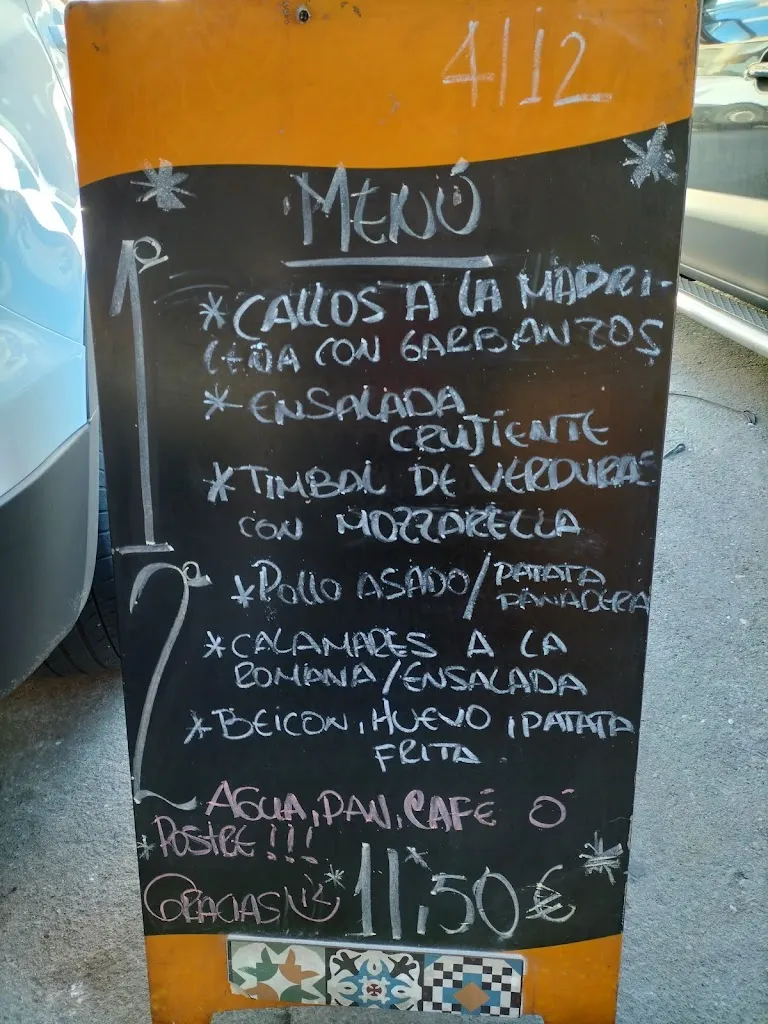 4/12
MENÚ
1º
*CALLOS A LA MADRI-
LEÑA CON GARBANZOS
*ENSALADA
CRUJIENTE
*TIMBAL DE VERDURAS
CON MOZZARELLA
2º
*POLLO ASADO/PATATA
PANADERA
*CALAMARES A LA
ROMANA/ENSALADA
*BEICON, HUEVO, PATATA
FRITA
AGUA, PAN, CAFÉ Ó
*POSTRE!!!
GRACIAS! *11,50€*